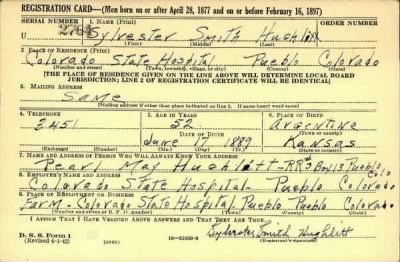 REGISTRATION CARD—(Men born on or after April 28, 1877 and on or before February 16, 1897)
SERIAL NUMBER 1. NAME (Print) ORDER NUMBER
U Sylvester Smith Hughlett
(First) (Middle) (Last)
2. PLACE OF RESIDENCE (Print)
Colorado State Hospital Pueblo Colorado
(Number and street) (Town, township, village, or city) (County) (State)
[THE PLACE OF RESIDENCE GIVEN ON THE LINE ABOVE WILL DETERMINE LOCAL BOARD
JURISDICTION; LINE 2 OF REGISTRATION CERTIFICATE WILL BE IDENTICAL]
3. MAILING ADDRESS
Same
[Mailing address if other than place indicated on line 2. If same insert word same]
4. TELEPHONE 5. AGE IN YEARS 6. PLACE OF BIRTH
3451 52 Argentine
DATE OF BIRTH (Town or county)
June 17 1889 Kansas
(Exchange) (Number) (Mo.) (Day) (Yr.) (State or country)
7. NAME AND ADDRESS OF PERSON WHO WILL ALWAYS KNOW YOUR ADDRESS
Pearl May Hughlett-RR3 Box 113 Pueblo Colo
8. EMPLOYER'S NAME AND ADDRESS
Colorado State Hospital- Pueblo Colorado
9. PLACE OF EMPLOYMENT OR BUSINESS
Farm-Colorado State Hospital Pueblo Pueblo Colorado
(Number and street or R. F. D. number) (Town) (County) (State)
I AFFIRM THAT I HAVE VERIFIED ABOVE ANSWERS AND THAT THEY ARE TRUE.
D. S. S. Form 1
(Revised 4-1-42) (over) 16—21630-2
Sylvester Smith Hughlett
(Registrant's signature)